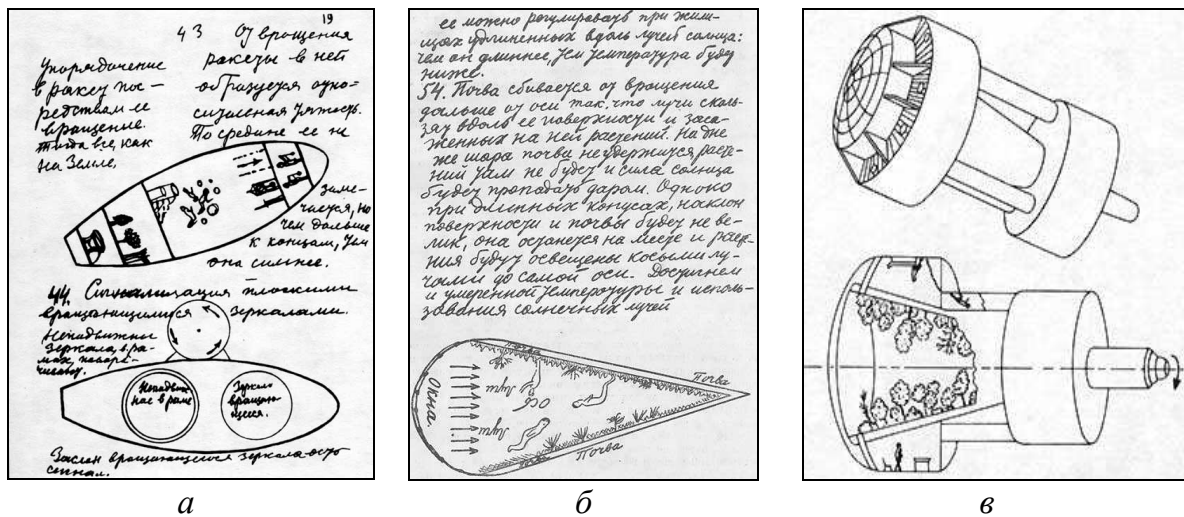 19
43 От вращения
ракеты в ней
образуется отно-
сительная тяжесть.
По средине ее не
Упорядочение
в ракет пос-
редством ее
вращение.
тогда все, как
на Земле.
заме-
чается, но
чем дальше
к концам, тем
она сильнее.
44. Сигнализация плоскими
вращающимися зеркалами.
Неподвижны
зеркала, в ра-
мах,
Неподвиж
ное в раме
Зеркало
вращаю-
щееся.
Заслон вращающегося зеркала
сигнал.
а
ее можно регулировать при жили-
щах удлиненных вдоль лучей солнца:
чем он длиннее, тем температура будет
ниже.
54. Почва сбивается от вращения
дальше от оси так, что лучи сколь-
зят вдоль ее поверхности и заса-
женных на ней растений. На дне
же шара почва не удержится расте-
ний там не будет и сила солнца
будет пропадать даром. Однако
при длинных конусах, наклон
поверхности и почвы будет не ве-
лик, она останется на месте и расте-
ния будут освещены косыми лу-
чами до самой оси. Достигнем
и умеренной температуры и исполь-
зования солнечных лучей
Почва
Почва
Окна.
Лучи
Ось
Лучи
Почва
б
в